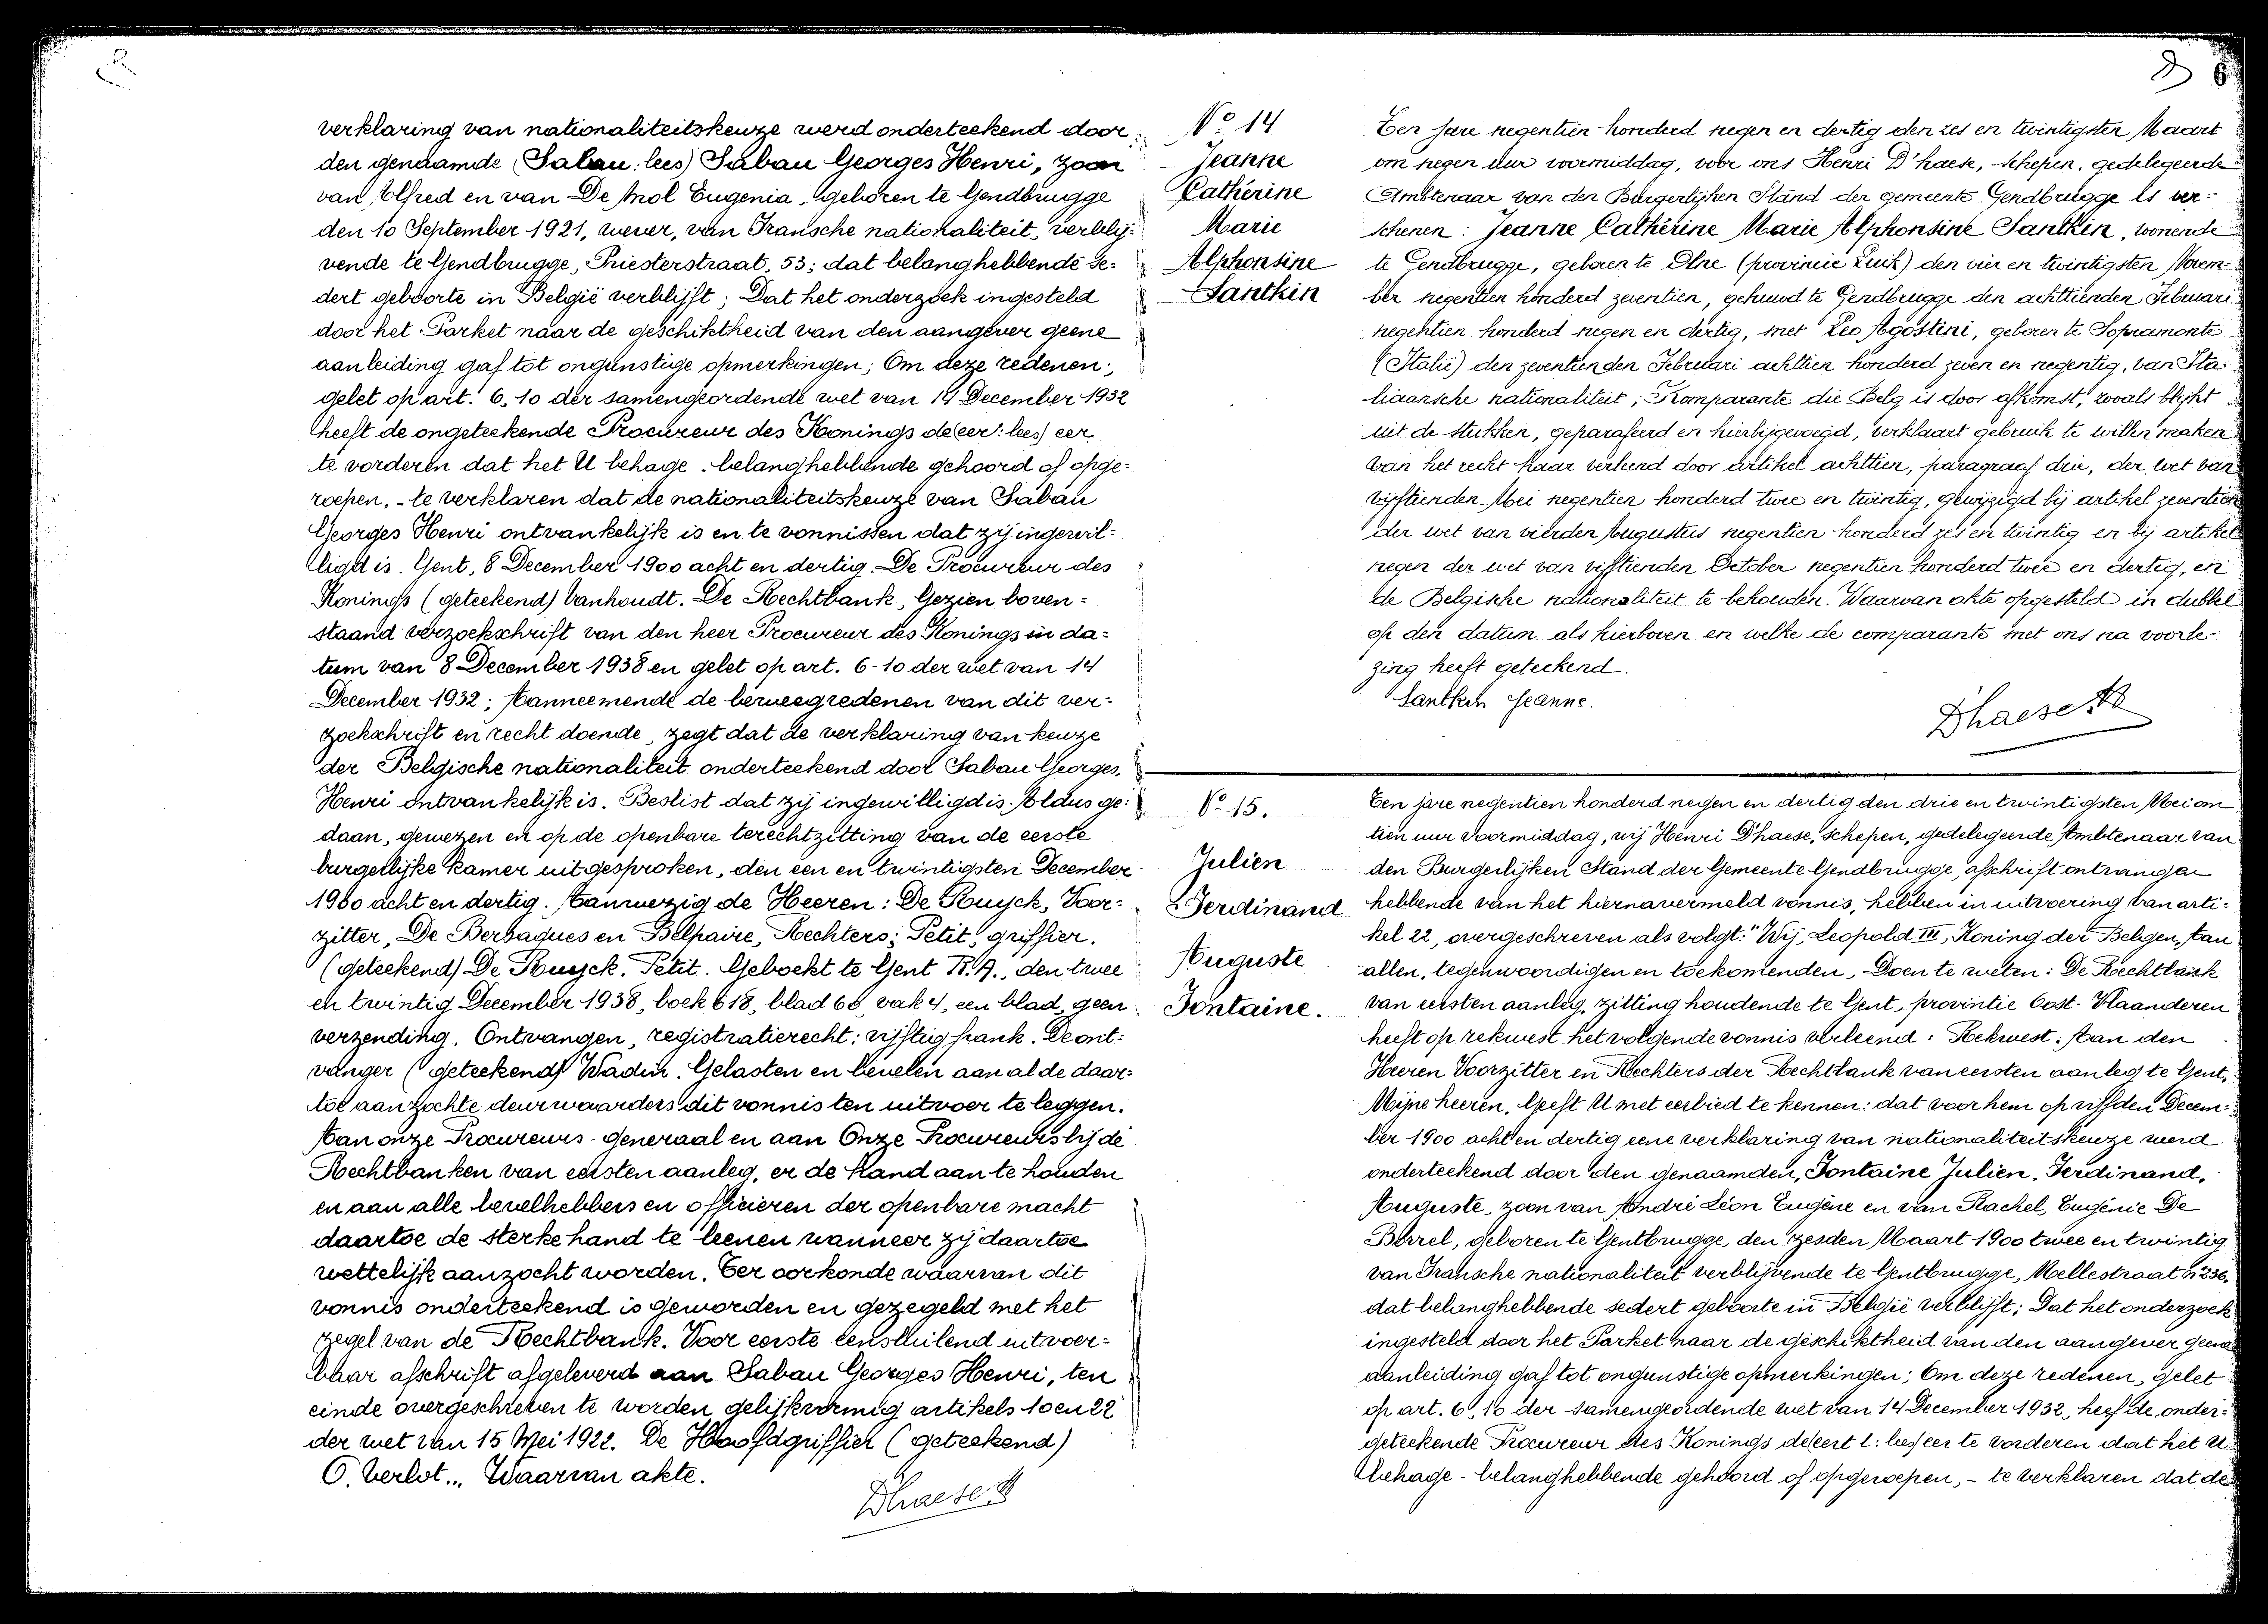 verklaring van nationaliteitskeuze werd onderteekend door
den genaamde (Sabau: lees) Sabau Georges Henri, zoon
van Alfred en van De Mol Eugenia, geboren te Gendbrugge
den 10 September 1921, wever, van Fransche nationaliteit, verblij-
vende te Gendbrugge, Priesterstraat, 53; dat belanghebbende se-
dert geboorte in België verblijft; Dat het onderzoek ingesteld
door het Parket naar de geschiktheid van den aangever geene
aanleiding gaf tot ongunstige opmerkingen; Om deze redenen:,
gelet op art. 6, 10 der samengeordende wet van 14 December 1932
heeft de ongeteekende Procureur des Konings de(eer: lees) eer
te vorderen dat het U behage - belanghebbende gehoord of opge-
roepen, - te verklaren dat de nationaliteitskeuze van Sabau
Georges Henri ontvankelijk is en te vonnissen dat zij ingewil-
ligd is. Gent, 8 December 1900 acht en dertig. De Procureur des
Konings (geteekend) Vanhoudt. De Rechtbank, Gezien boven-
staand verzoekschrift van den heer Procureur des Konings in da-
tum van 8 December 1938 en gelet op art. 6-10 der wet van 14
December 1932; Aanneemende de beweegredenen van dit ver-
zoekschrift en recht doende, zegt dat de verklaring van keuze
der Belgische nationaliteit onderteekend door Sabau Georges,
Henri ontvankelijk is. Beslist dat zij ingewilligd is. Aldus ge-
daan, gewezen en op de openbare terechtzitting van de eerste
burgerlijke kamer uitgesproken, den een en twintigsten December
1900 acht en dertig. Aanwezig de Heeren: De Ruyck, Voor-
zitter, De Bersaques en Belpaire, Rechters; Petit, griffier.
(geteekend) De Ruyck. Petit. Geboekt te Gent R.A., den twee
en twintig December 1938, boek 618, blad 60, vak 4, een blad, geen
verzending. Ontvangen, registratierecht: vijftig frank. De ont-
vanger (geteekend) Wadin. Gelasten en bevelen aan al de daar-
toe aanzochte deurwaarders dit vonnis ten uitvoer te leggen.
Aan onze Procureurs-generaal en aan Onze Procureurs bij de
Rechtbanken van eersten aanleg, er de hand aan te houden
en aan alle bevelhebbers en officieren der openbare macht
daartoe de sterke hand te leenen wanneer zij daartoe
wettelijk aanzocht worden. Ter oorkonde waarvan dit
vonnis onderteekend is geworden en gezegeld met het
zegel van de Rechtbank. Voor eerste eensluitend uitvoer-
baar afschrift afgeleverd aan Sabau Georges Henri, ten
einde overgeschreven te worden gelijkvormig artikels 10 en 22
der wet van 15 Mei 1922. De Hoofdgriffier (geteekend)
O. Verlot... Waarvan akte.
Dhaese H
6
No 14
Jeanne
Cathérine
Marie
Alphonsine
Santkin
Ten jare negentien honderd negen en dertig den zes en twintigsten Maart
om negen uur voormiddag, voor ons Henri D'haese, schepen, gedelegeerde
Ambtenaar van den Burgerlijken Stand der gemeente Gendbrugge is ver-
schenen: Jeanne Cathérine Marie Alphonsine Santkin, wonende
te Gendbrugge, geboren te Olne (provincie Luik) den vier en twintigsten Novem-
ber negentien honderd zeventien, gehuwd te Gendbrugge den achttienden Februari
negentien honderd negen en dertig, met Leo Agostini, geboren te Sopramonte
(Italië) den zeventienden Februari achttien honderd zeven en negentig, van Ita-
liaansche nationaliteit; Komparante die Belg is door afkomst, zooals blijkt
uit de stukken, geparafeerd en hierbijgevoegd, verklaart gebruik te willen maken
van het recht haar verleend door artikel achttien, paragraaf drie, der wet van
vijftienden Mei negentien honderd twee en twintig, gewijzigd bij artikel zeventien
der wet van vierden Augustus negentien honderd zes en twintig en bij artikel
negen der wet van vijftienden October negentien honderd twee en dertig, en
de Belgische nationaliteit te behouden. Waarvan akte opgesteld in dubbel
op den datum als hierboven en welke de comparante met ons na voorle-
zing heeft geteekend.
Santkin Jeanne.
Dhaese H
No 15.
Julien
Ferdinand
Auguste
Fontaine.
Ten jare negentien honderd negen en dertig den drie en twintigsten Mei om
tien uur voormiddag, wij Henri D'haese, schepen, gedelegeerde Ambtenaar van
den Burgerlijken Stand der Gemeente Gendbrugge, afschrift ontvangen
hebbende van het hiernavermeld vonnis, hebben in uitvoering van arti-
kel 22, overgeschreven als volgt: "Wij, Leopold III, Koning der Belgen, Aan
allen, tegenwoordigen en toekomenden, Doen te weten: De Rechtbank
van eersten aanleg, zitting houdende te Gent, provintie Oost-Vlaanderen
heeft op rekwest het volgende vonnis verleend: Rekwest: Aan den
Heeren Voorzitter en Rechters der Rechtbank van eersten aanleg te Gent,
Mijne heeren, Geeft U met eerbied te kennen: dat voor hem op vijfden Decem-
ber 1900 acht en dertig eene verklaring van nationaliteitskeuze werd
onderteekend door den genaamden, Fontaine Julien, Ferdinand,
Auguste, zoon van André Léon Eugène en van Rachel, Eugénie De
Borrel, geboren te Gentbrugge, den zesden Maart 1900 twee en twintig
van Fransche nationaliteit verblijvende te Gentbrugge, Mellestraat no 236,
dat belanghebbende sedert geboorte in België verblijft; Dat het onderzoek
ingesteld door het Parket naar de geschiktheid van den aangever geene
aanleiding gaf tot ongunstige opmerkingen; Om deze redenen, gelet
op art. 6, 10 der samengeordende wet van 14 December 1932, heeft de onder-
geteekende Procureur des Konings de(eert l: lees) eer te vorderen dat het U
behage - belanghebbende gehoord of opgeroepen, - te verklaren dat de